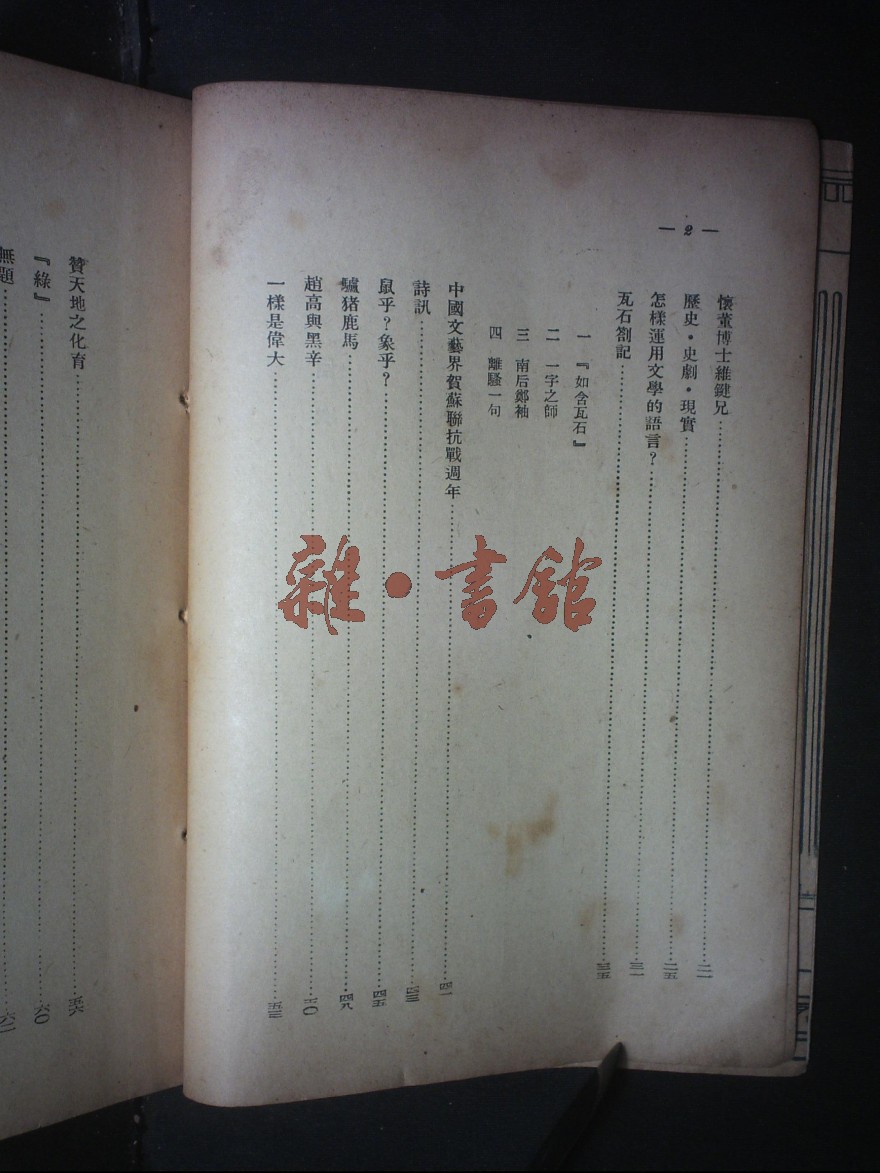 — 2 —
懷董博士維鍵兄……二一
歷史・史劇・現實……二五
怎樣運用文學的語言？……三一
瓦石劄記……三五
一 『如含瓦石』
二 一字之師
三 南后鄭袖
四 離騷一句
中國文藝界賀蘇聯抗戰週年……四一
詩訊……四三
鼠乎？象乎？……四五
驢猪鹿馬……四八
趙高與黑辛……五〇
一樣是偉大……五三
贊天地之化育……五六
『綠』……六〇
無題……六二
雜・書館